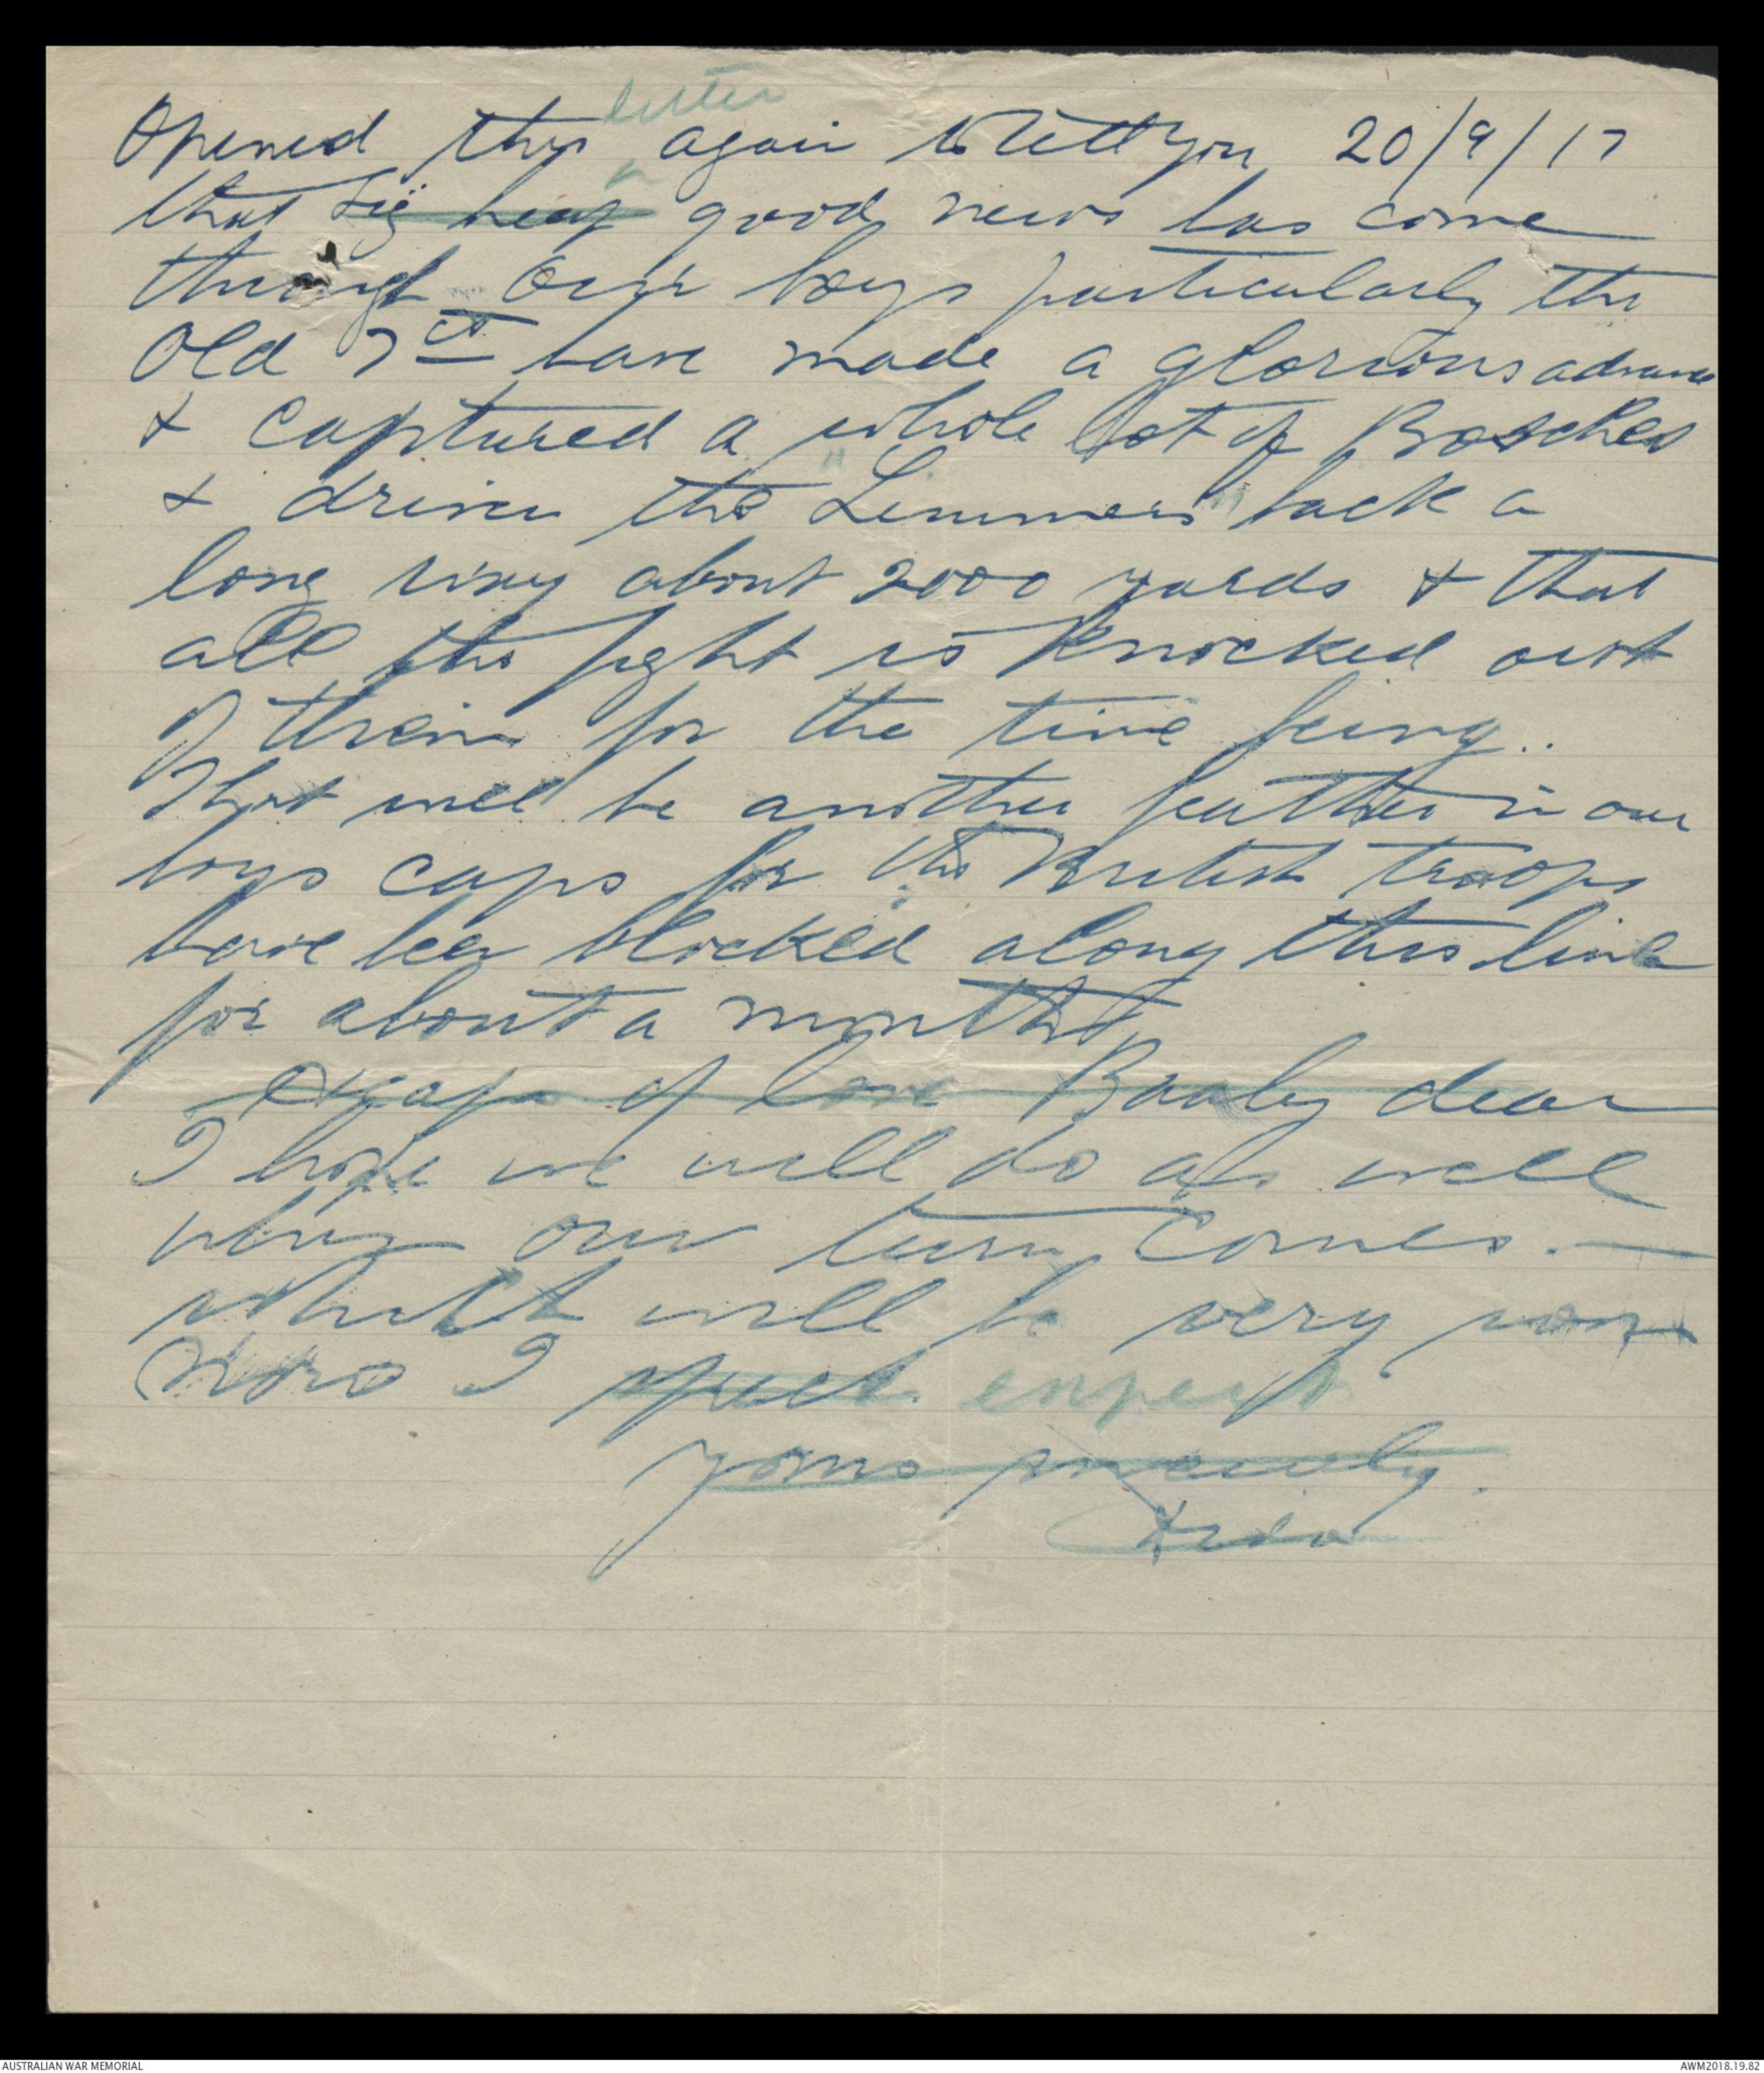 letter
Opened this ^ again to tell you 20/9/17
that big heap good news has come
through Our boys particularly the
Old 7th have made a glorious advance
& captured a whole lot of Bosches
& driven the "Lemmeis" back a
long way about 2000 yards & that
all the fight is knocked out
of them for the time being..
That will be another feather in our
boys caps for the British troops
have been blocked along this line
for about a month
of love Baaby dear
I hope we will do as well
when our turn comes. —
which will be very soon
now I spect. expect
yours sincerely.